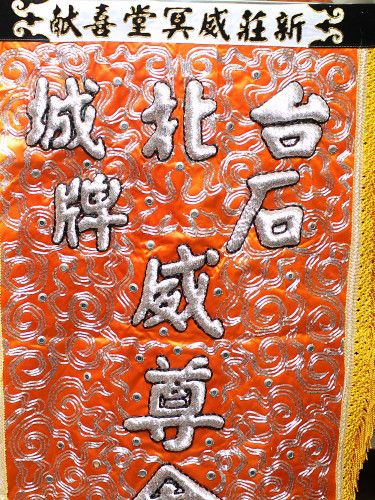 新莊威冥堂喜献
台北城
石牌
威尊